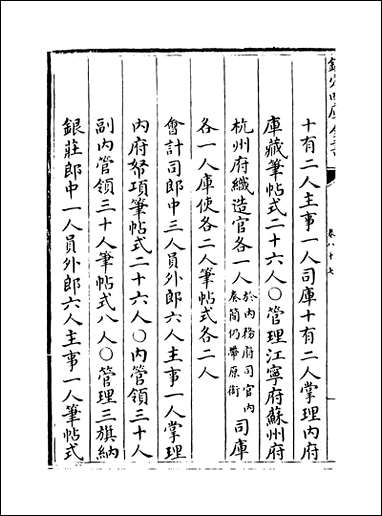 欽定四庫全書
卷八十七
十有二人主事一人司庫十有二人掌理内府
庫藏筆帖式二十六人〇管理江寧府蘇州府
杭州府織造官各一人於内務府司官内奏簡仍帶原銜司庫
各一人庫使各二人筆帖式各二人
會計司郎中三人員外郎六人主事一人掌理
内府帑項筆帖式二十六人〇内管領三十人
副内管領三十人筆帖式八人〇管理三旗納
銀莊郎中一人員外郎六人主事一人筆帖式